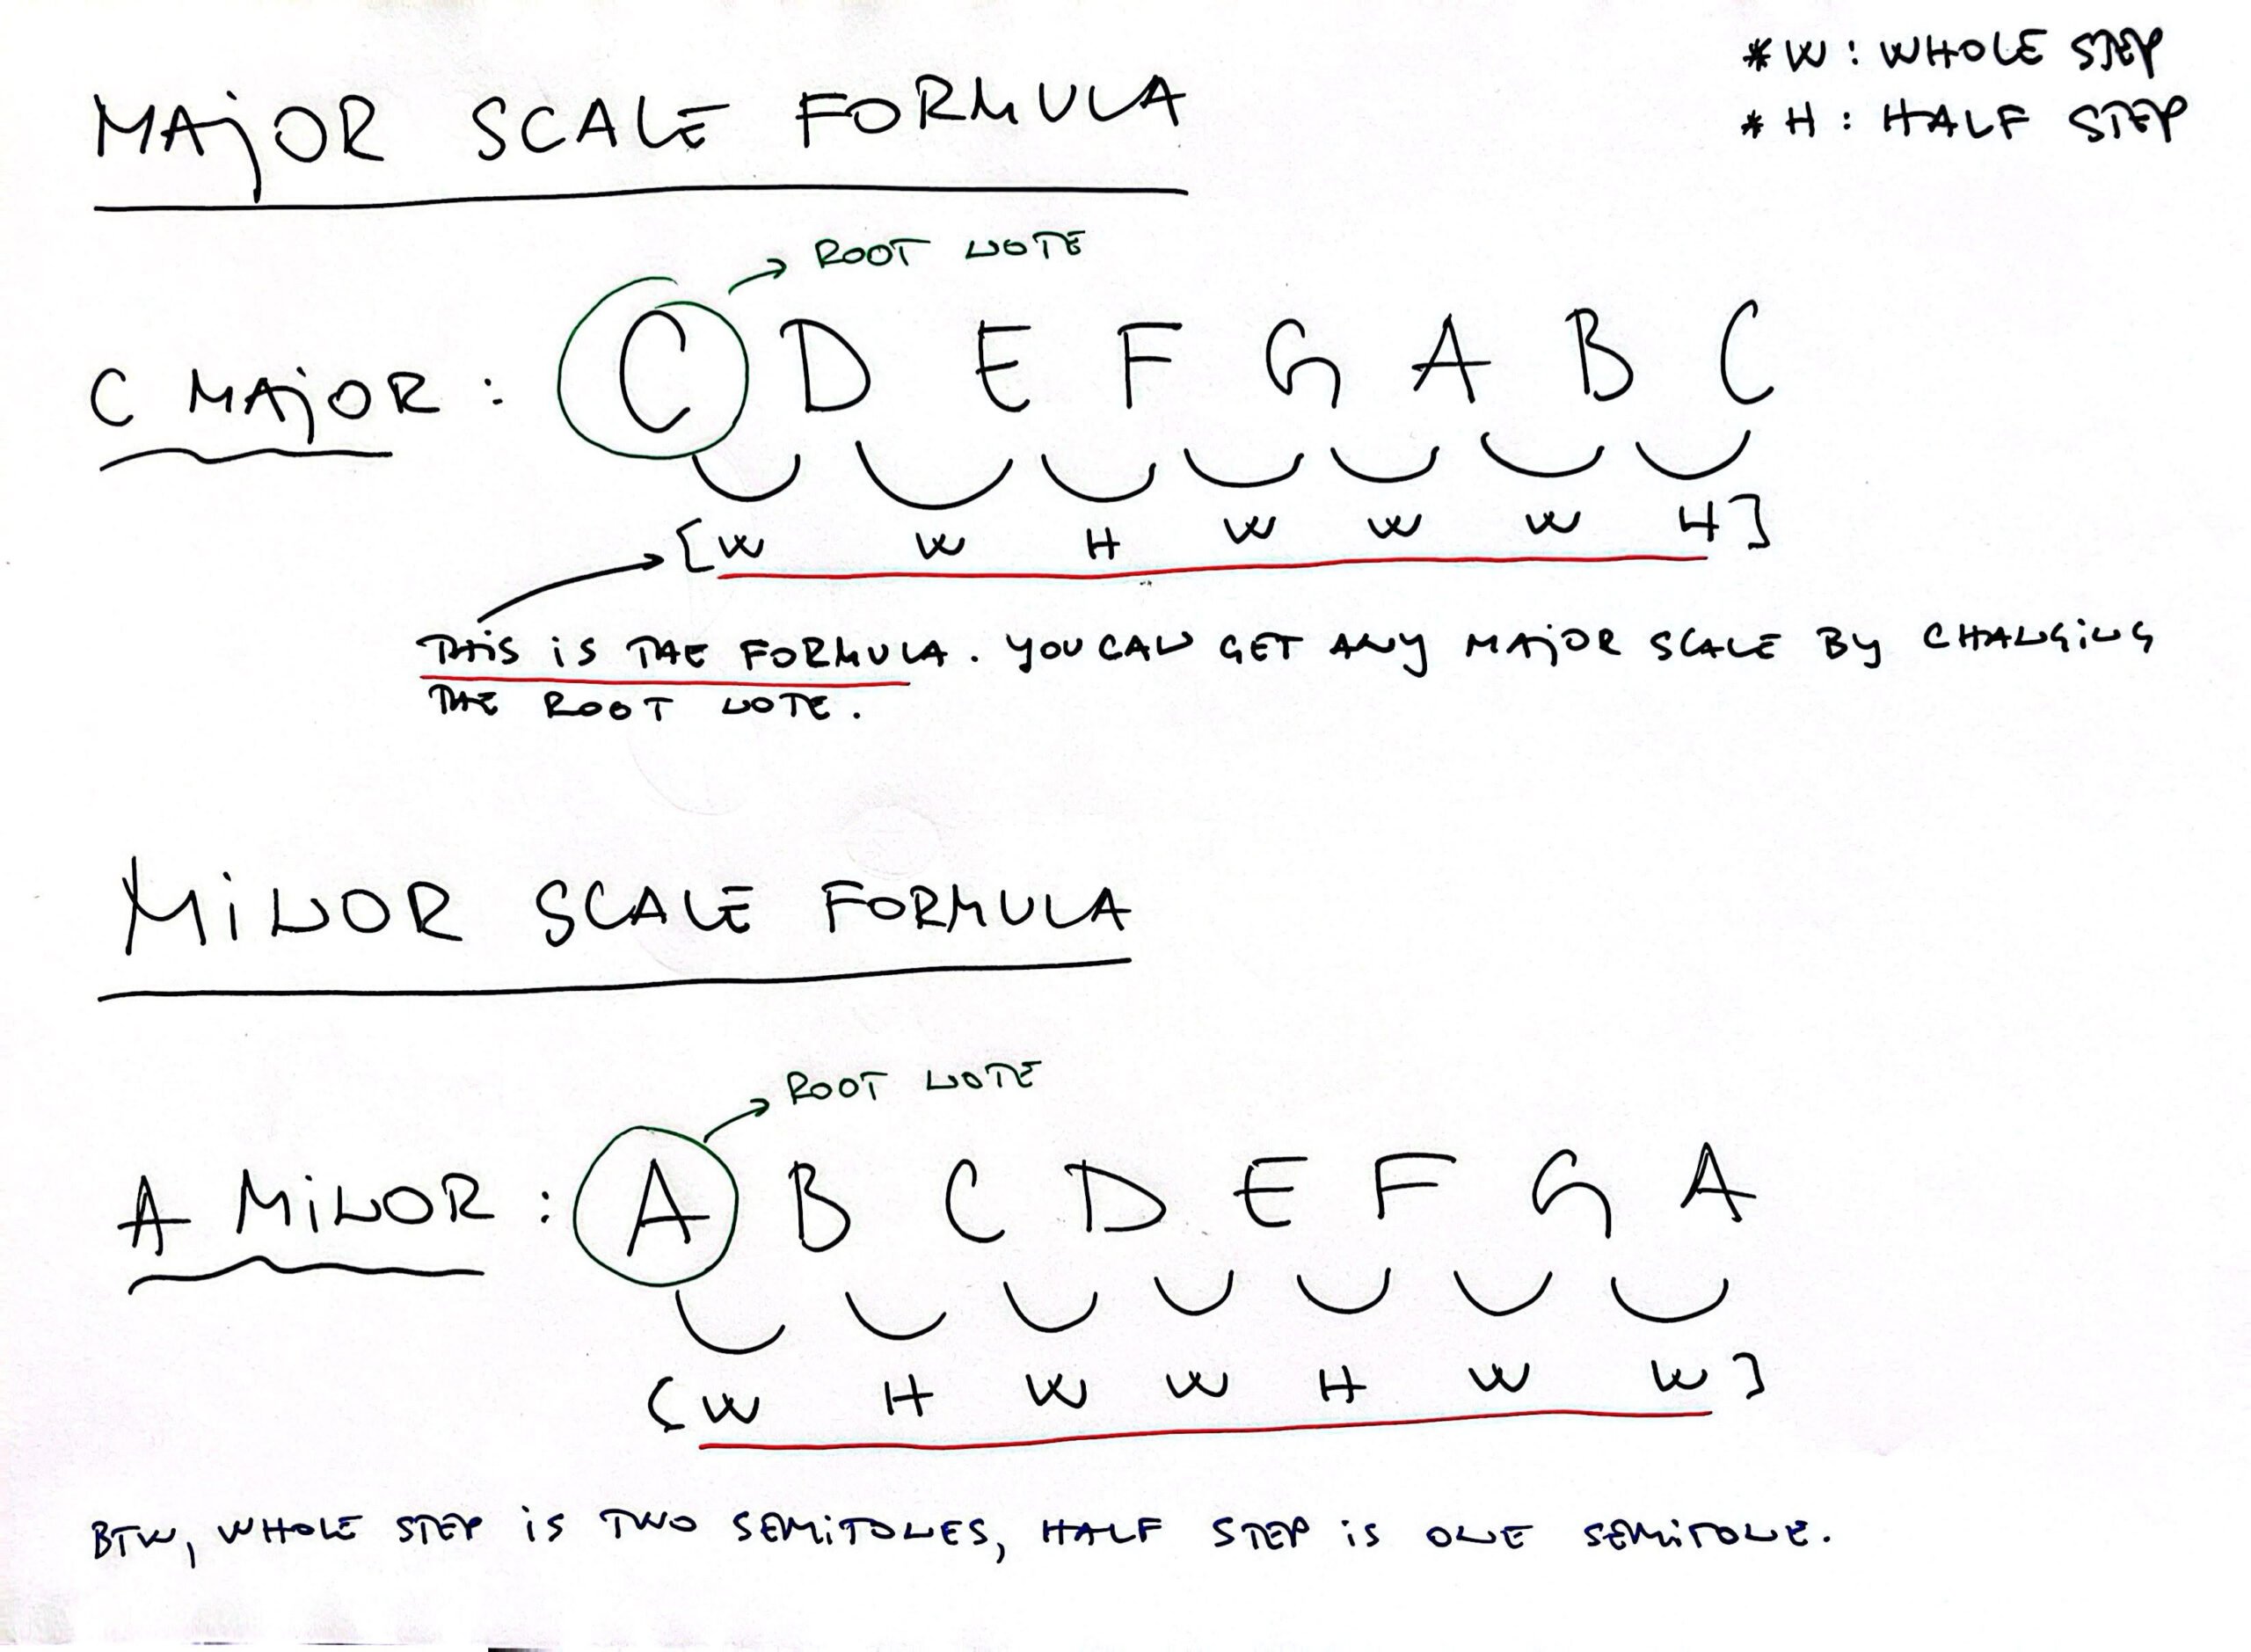 *W : WHOLE STEP
*H : HALF STEP
MAjOR SCALE FORMULA
ROOT NOTE
C MAjOR : C D E F G A B C
[W W H W W W H]
THiS iS THE FORMULA. YOU CAN GET ANY MAjOR SCALE BY CHANGiNG
THE ROOT NOTE.
MiNOR SCALE FORMULA
ROOT NOTE
A MiNOR : A B C D E F G A
[W H W W H W W]
BTW, WHOLE STEP iS TWO SEMiTONES, HALF STEP iS ONE SEMiTONE.